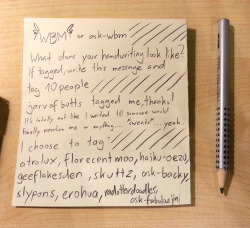 WBM or ask-wbm
What does your handwriting look like?
If tagged, write this message and
tag 10 people
jar of butts tagged me, thanks!
It's totally not like I waited till someone would
finally mention me in anything... "sweats" ... yeah.
I choose to tag:
atrolux, florecentmoo, haiku-oezu,
geeflakesden, skuttz, ask-backy,
slypons, erohua, radotterdoodles,
ask-fabulasjni